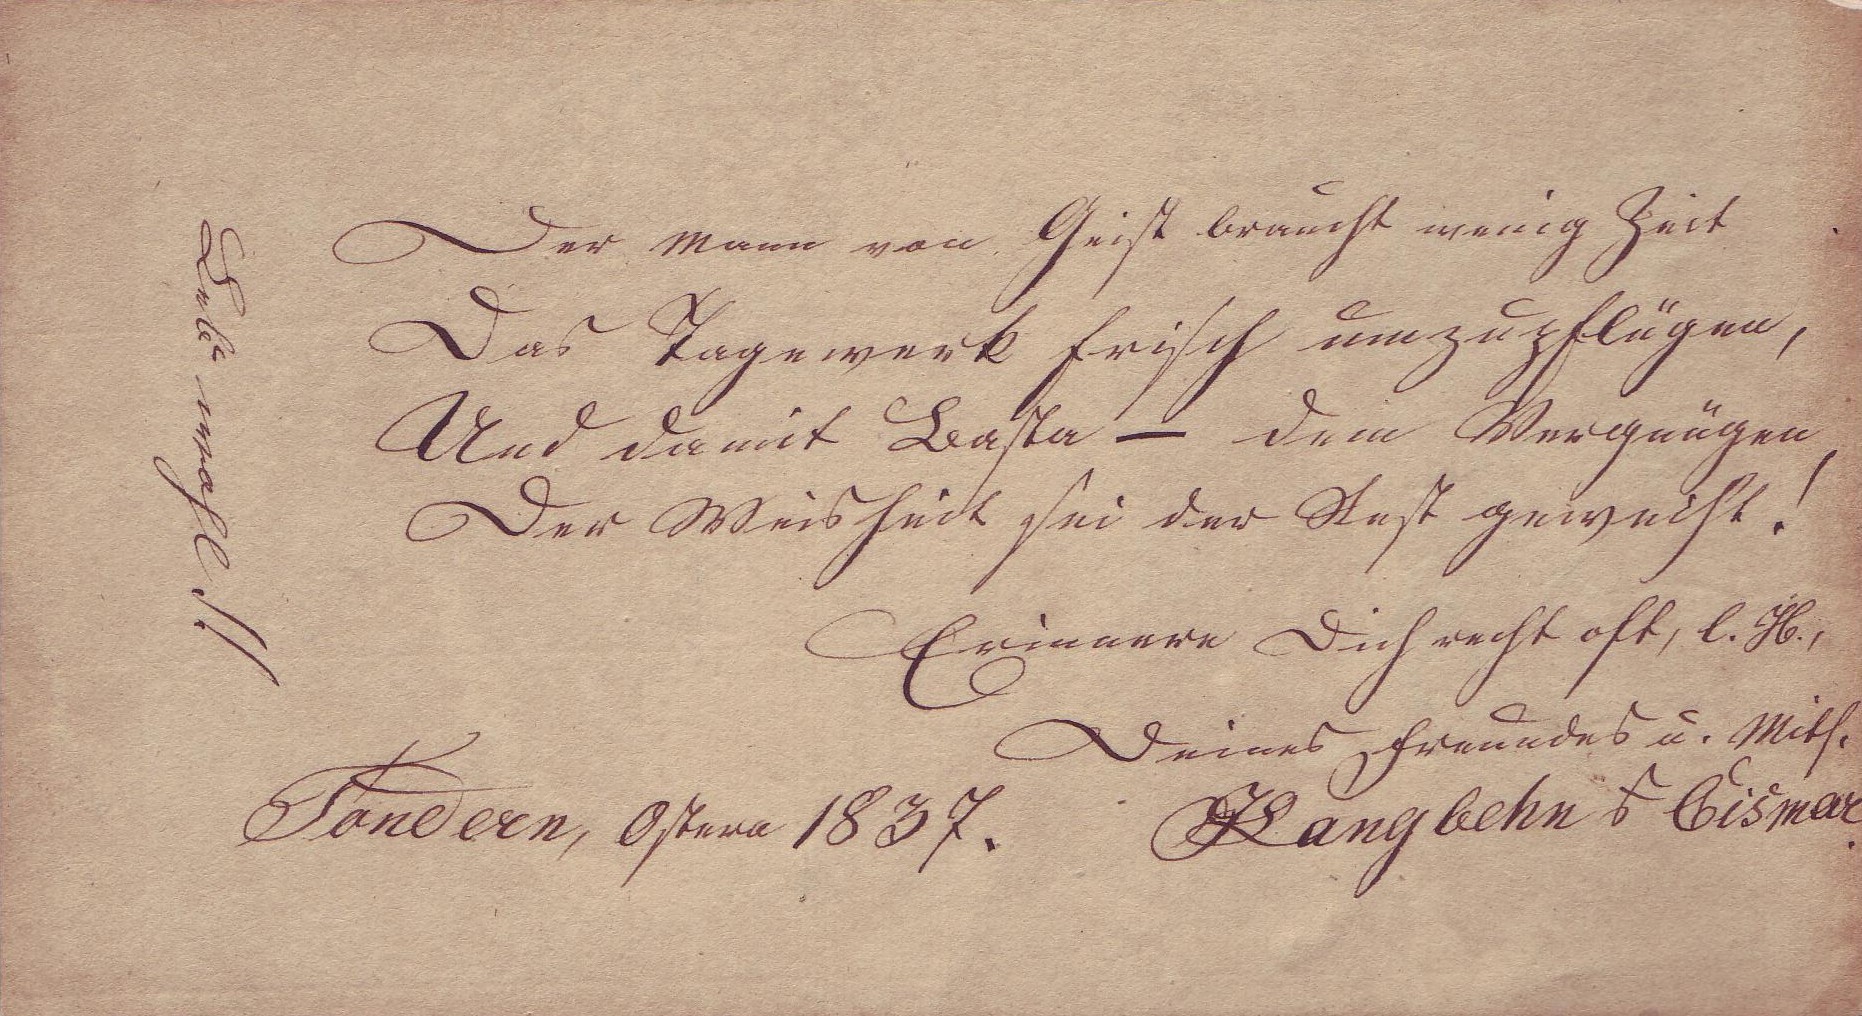 Der Mann von Geist braucht wenig Zeit
Das Tagewerk frisch umzupflügen,
Und damit Basta — dem Vergnügen,
Der Weisheit sei der Rest geweiht!
Erinnere Dich recht oft, l. H.,
Deines Freundes u. Mits.
Tondern, Ostern 1837.
Langbehn Cismar.
Lebe wohl!